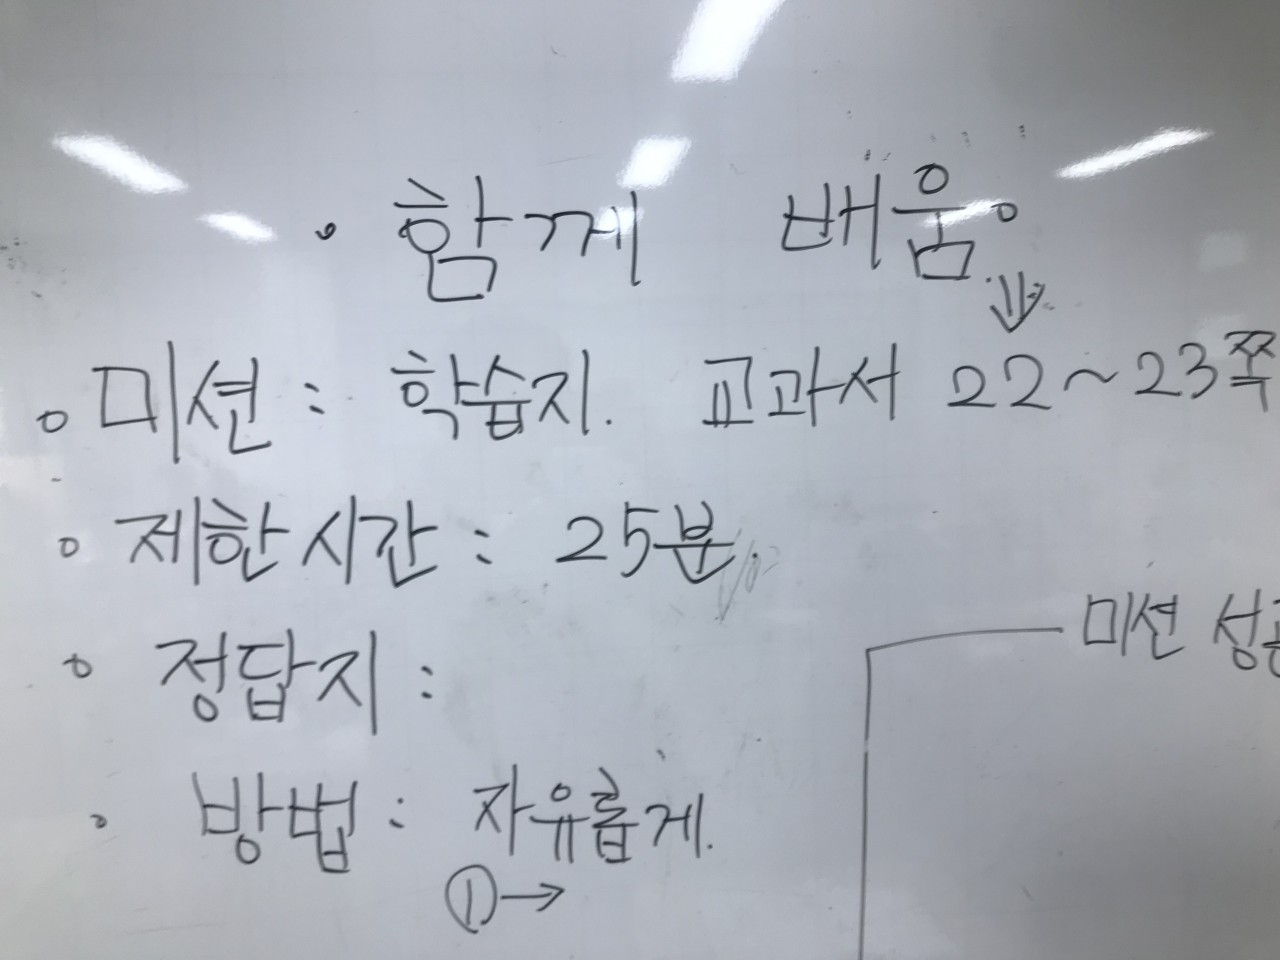 · 함께 배움。
◦ 미션 : 학습지. 교과서 22~23쪽
◦ 제한시간 : 25분.
◦ 정답지 :
미션
· 방법 : 자유롭게.
①→